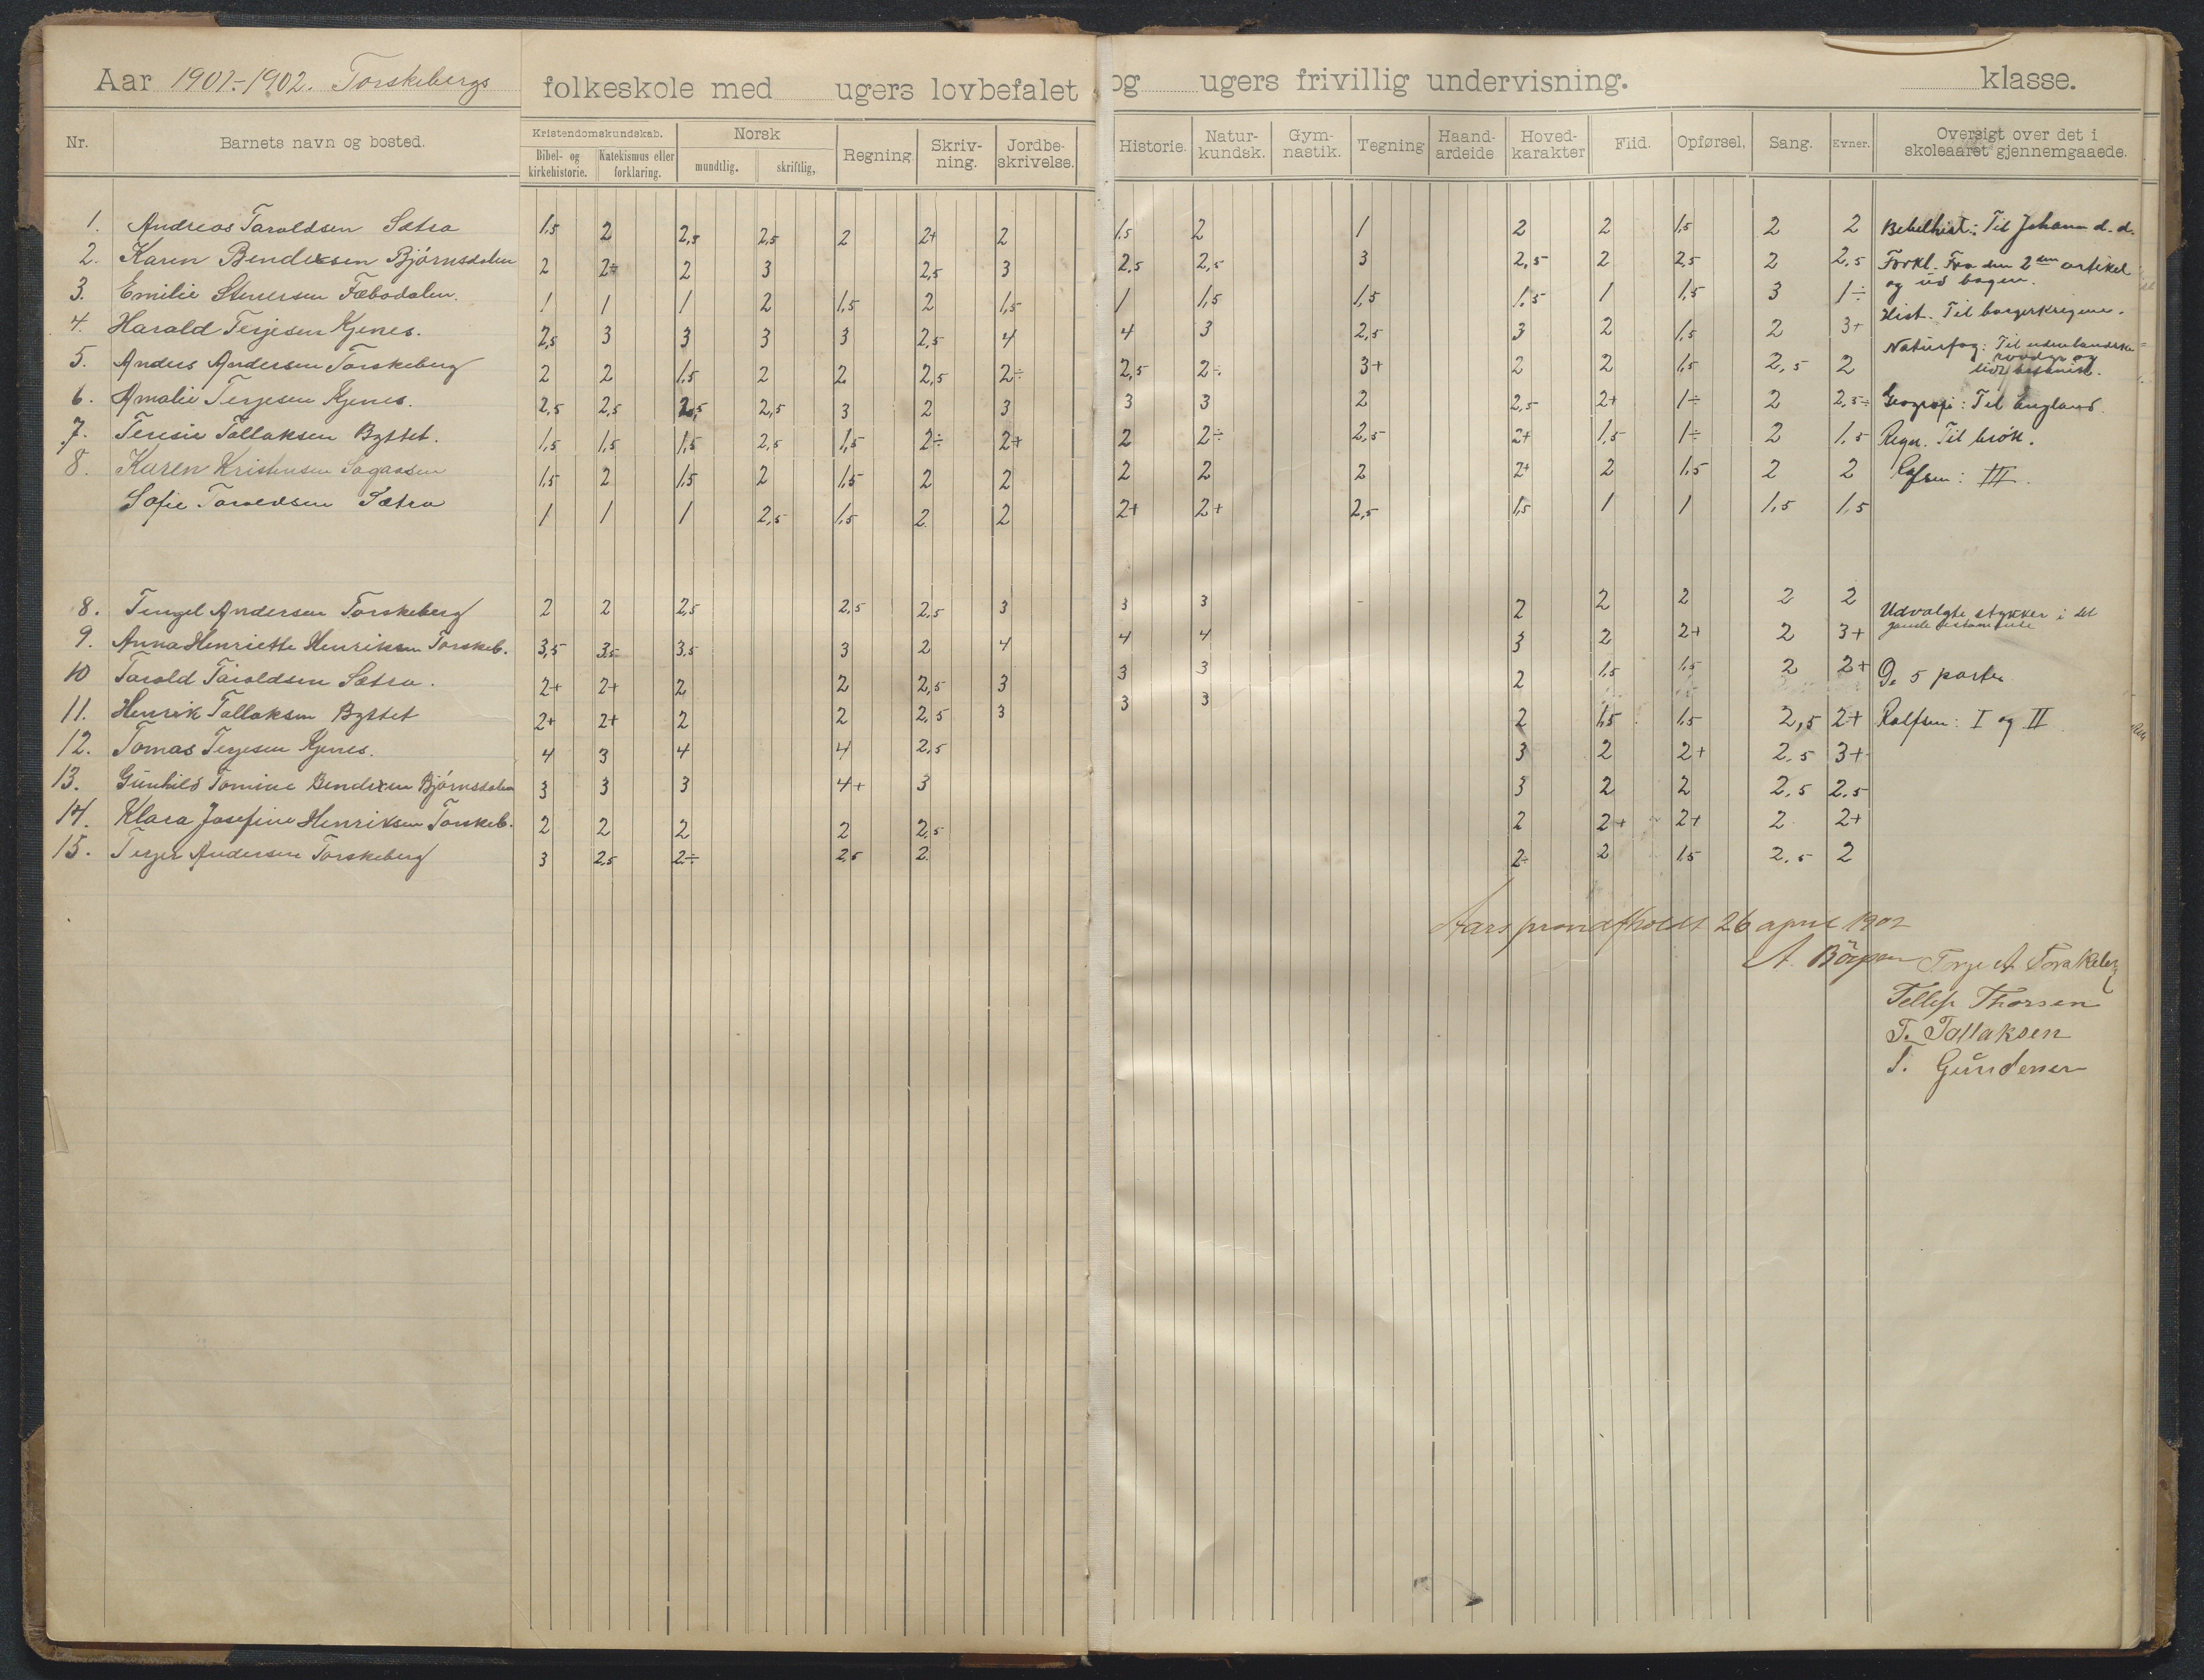 Aar 1901-1902. Torskebergs folkeskole med ugers lovbefalet og ugers frivillig undervisning. klasse.
Nr. Barnets navn og bosted. Kristendomskundskab. Bibel- og kirkehistorie. Katekismus eller forklaring. Norsk mundtlig. skriftlig, Regning. Skriv-ning. Jordbe-skrivelse. Historie. Natur-kundsk. Gym-nastik. Tegning Haand-ardeide Hoved-karakter Flid. Opførsel. Sang. Evner. Oversigt over det i skoleaaret gjennemgaaede.
1. Andreas Taroldsen Sætra 1,5 2 2,5 2,5 2 2+ 2 1,5 2 1 2 2 1,5 2 2 Bibelhist: Til Johann d. d.
2. Karen Bendixsen Bjørnsdalen 2 2÷ 2 3 2,5 3 2,5 2,5 3 2,5 2 2,5 2 2,5 Forkl. Fra den 2den artikel
og ud bogen.
3. Emilie Fæbodalen. 1 1 1 2 1,5 2 1,5 1 1,5 1,5 1,5 1 1,5 3 1÷
Hist. Til borgerkrigene.
4. Harald Terjesen Kjenes. 2,5 3 3 3 3 2,5 4 4 3 2,5 3 2 1,5 2 3+
Naturfag: Til udenlandske
rovdyr og
5. Anders Andersen Torskeberg 2 2 1,5 2 2 2,5 2÷ 2,5 2÷ 3+ 2 2 1,5 2,5 2
6. Amalie Terjesen Kjenes. 2,5 2,5 2,5 2,5 3 2 3 3 3 2 2,5 2+ 1÷ 2 2,5÷ Geografi: Til England.
7. Teresie Tallaksen Byttet. 1,5 1,5 1,5 2,5 1,5 2÷ 2+ 2 2÷ 2,5 2+ 1,5 1÷ 2 1,5 Regn. Til brøk.
8. Karen Kristensen 1,5 2 1,5 2 1,5 2 2 2 2 2 2+ 2 1,5 2 2 : III.
Sofie Taroldsen Sætra 1 1 1 2,5 1,5 2. 2 2+ 2+ 2,5 1,5 1 1 1,5 1,5
8. Tengel Andersen Torskeberg 2 2 2,5 2,5 2,5 3 3 3 - 2 2 2 2 2 Udvalgte stykker i det
gamle testamente
9. Anna Henriette Henriksen Torskeb. 3,5 3,5 3,5 3 2 4 4 4 3 2 2+ 2 3+
10 Tarald Taroldsen Sætra. 2+ 2+ 2 2 2,5 3 3 3 2 1,5 1,5 2 2+ De 5 parter
11. Henrik Tallaksen Byttet 2+ 2+ 2 2 2,5 3 3 3 2 1,5 1,5 2,5 2+ Rolfsen: I og II
12. Tomas Terjesen Kjenes. 4 3 4 4 2,5 3 2 2+ 2.5 3+
13. Gunhild Tomine Bendixen Bjørnsdalen 3 3 3 4+ 3 3 2 2 2.5 2.5
14. Klara Josefine Henriksen Torskeb. 2 2 2 2 2,5 2 2+ 2+ 2 2+
15. Terjer Andersen Torskeberg 3 2,5 2÷ 2,5 2. 2÷ 2 1,5 2.5 2
Aarsprøve afholdt 26 april 1902
A. Terje A Torskeberg
Tellef Thorsen
T. Tallaksen